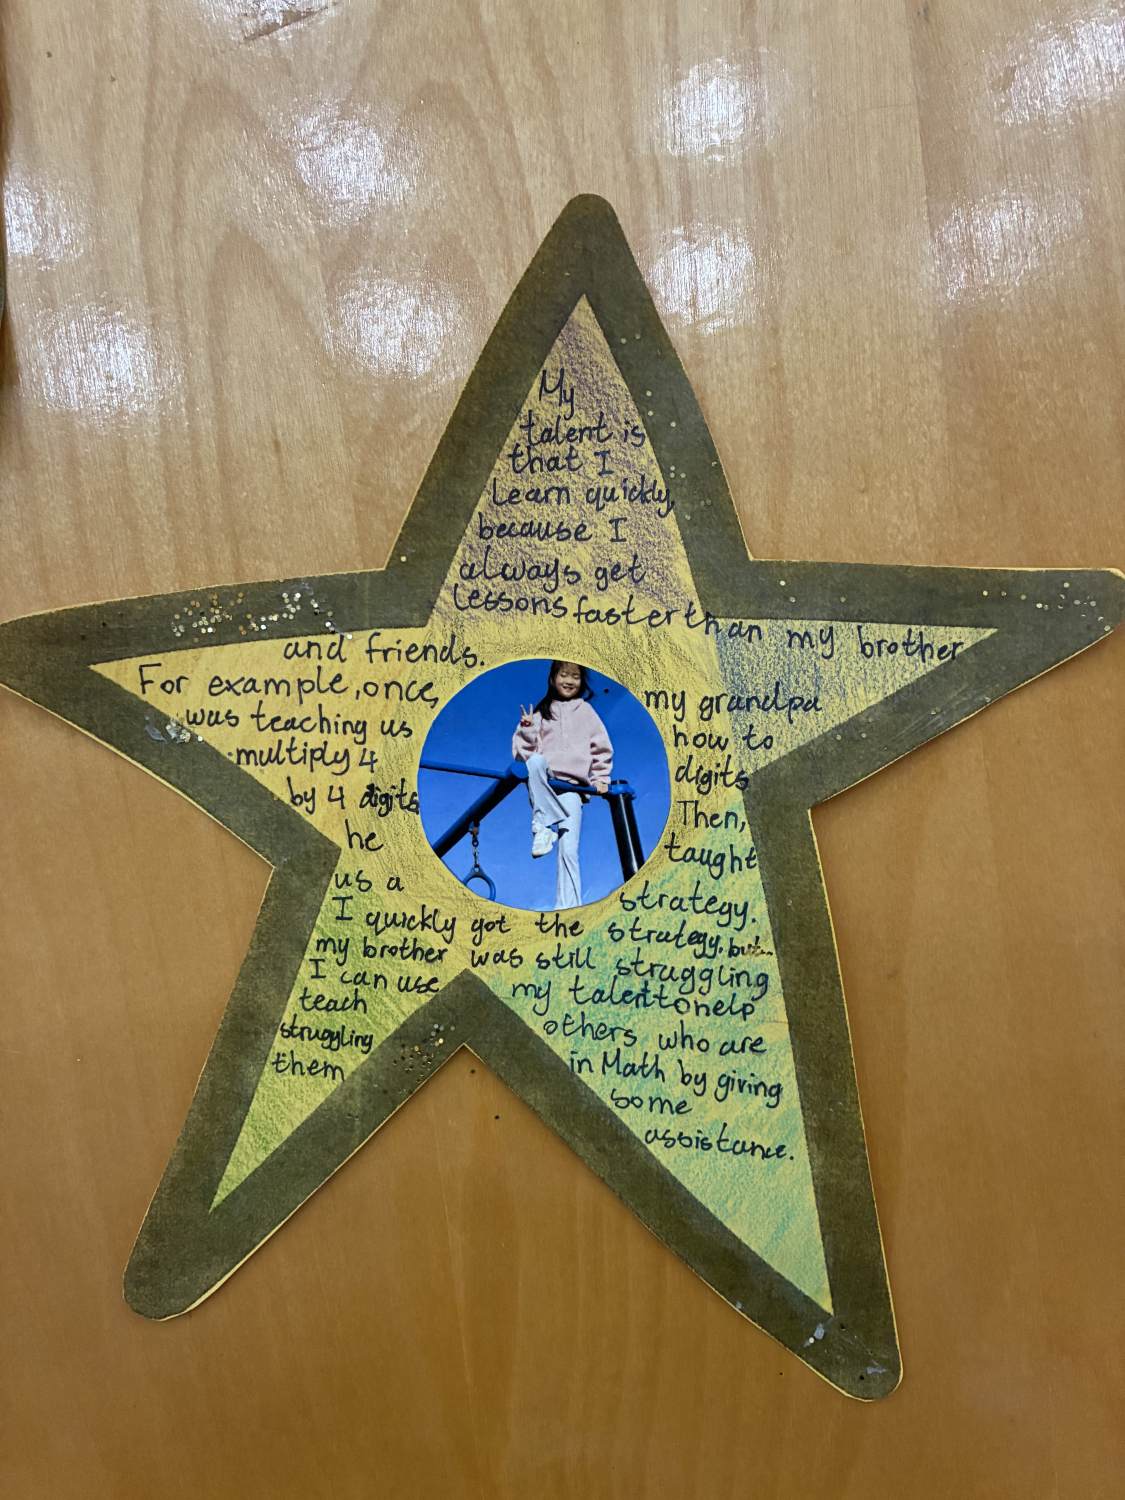 My
talent is
that I
learn quickly,
because I
always get
lessons faster than my brother
and friends.
For example, once, my grandpa
was teaching us how to
multiply 4 digits
by 4 digits Then,
he taught
us a strategy.
I quickly got the strategy. but
my brother was still struggling
I can use my talent to help
teach others who are
struggling in Math by giving
them some
assistance.